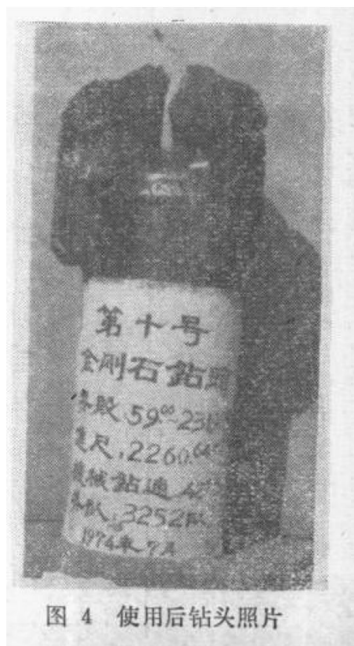 第十号
金刚石鉆頭
井段 59.⁰⁰-231
進尺,2260.64
機械鉆速
井队,3252队
1974年7月
图 4 使用后钻头照片